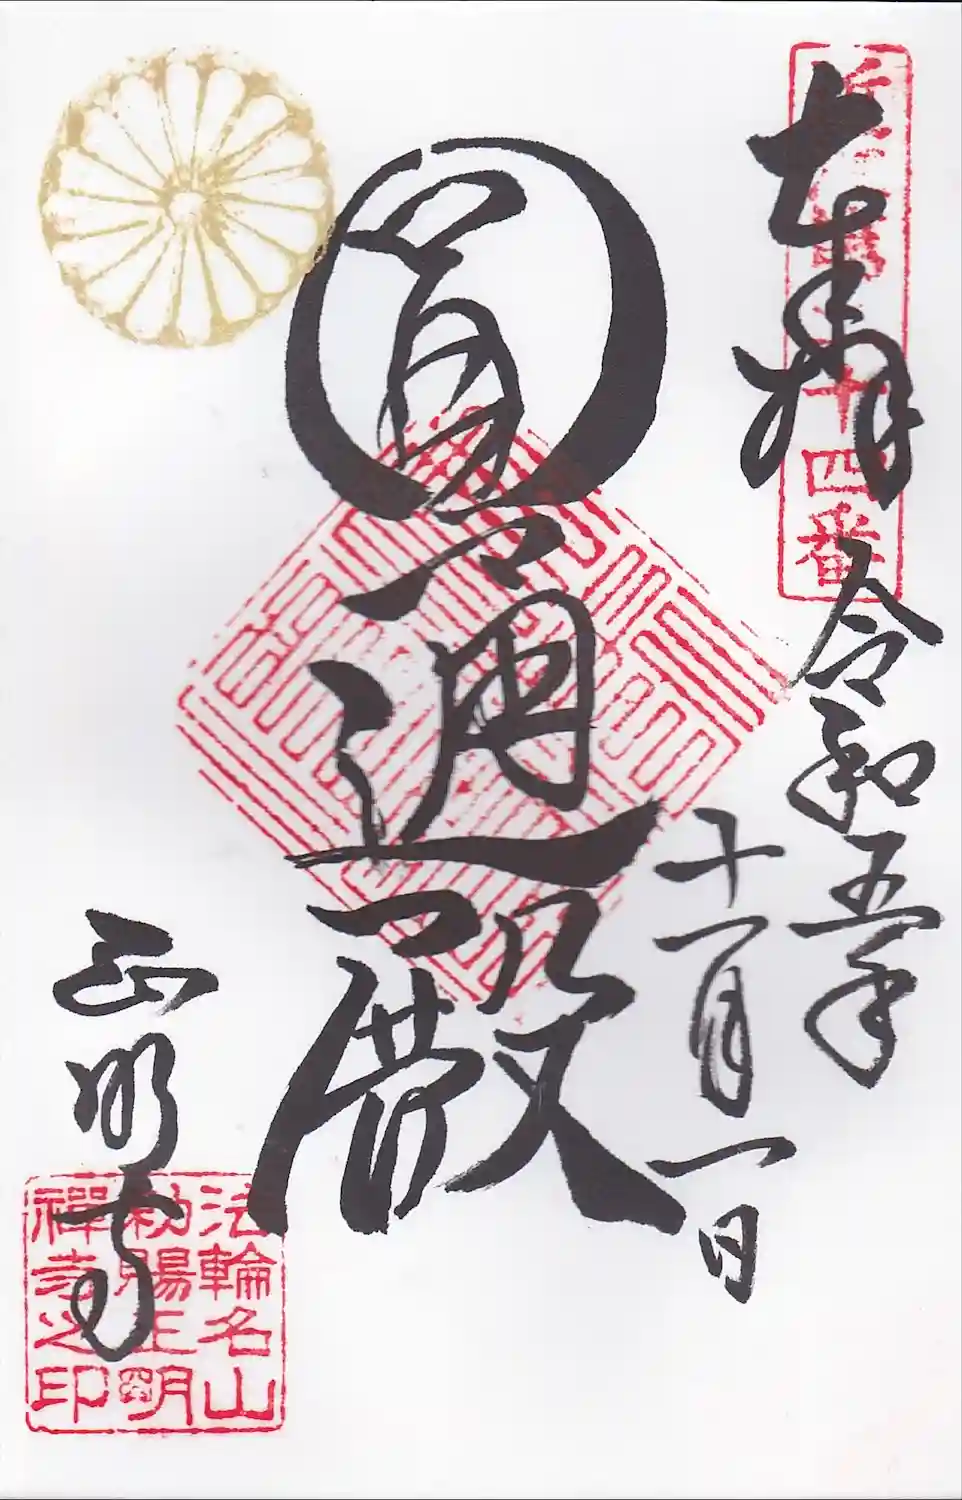 奉拝
十四番
令和五年
十一月一日
圓通殿
正明寺
法輪名山
勅賜正明
禪寺之印